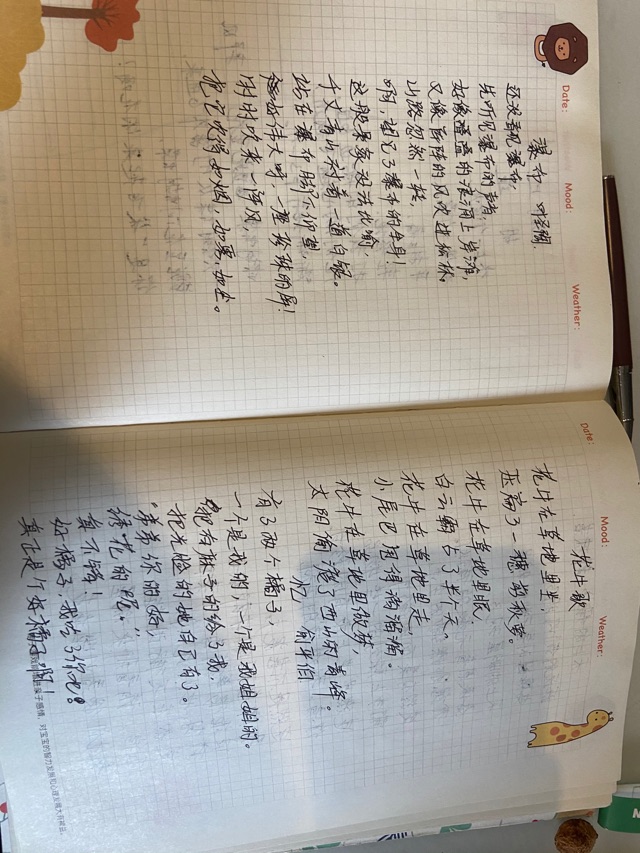 Date:
Mood:
Weather:
瀑布 叶圣陶
还没看见瀑布,
先听见瀑布的声音,
好像叠叠的浪涌上岸滩,
又像阵阵的风吹过松林。
山路忽然一转,
啊!望见了瀑布的全身!
这般景象没法比喻,
千丈青山衬着一道白银。
站在瀑布脚下仰望,
好伟大呀,一座珍珠的屏!
时时吹来一阵风,
把它吹得如烟,如雾,如尘。
Date:
Mood:
Weather:
花牛歌
花牛在草地里坐,
压扁了一穗剪秋萝。
花牛在草地里眠,
白云霸占了半个天。
花牛在草地里走,
小尾巴甩得滴溜溜。
花牛在草地里做梦,
太阳偷渡了西山的青峰。
忆 俞平伯
有了两个橘子,
一个是我的,一个是我姐姐的。
把有麻子的给了我,
把光脸的她自己有了。
“弟弟你的好,
绣花的呢。”
真不错!
好橘子,我吃了你吧。
真正是个好橘子啊!
亲子感情,对宝宝的智力发展和心理发展大有裨益。